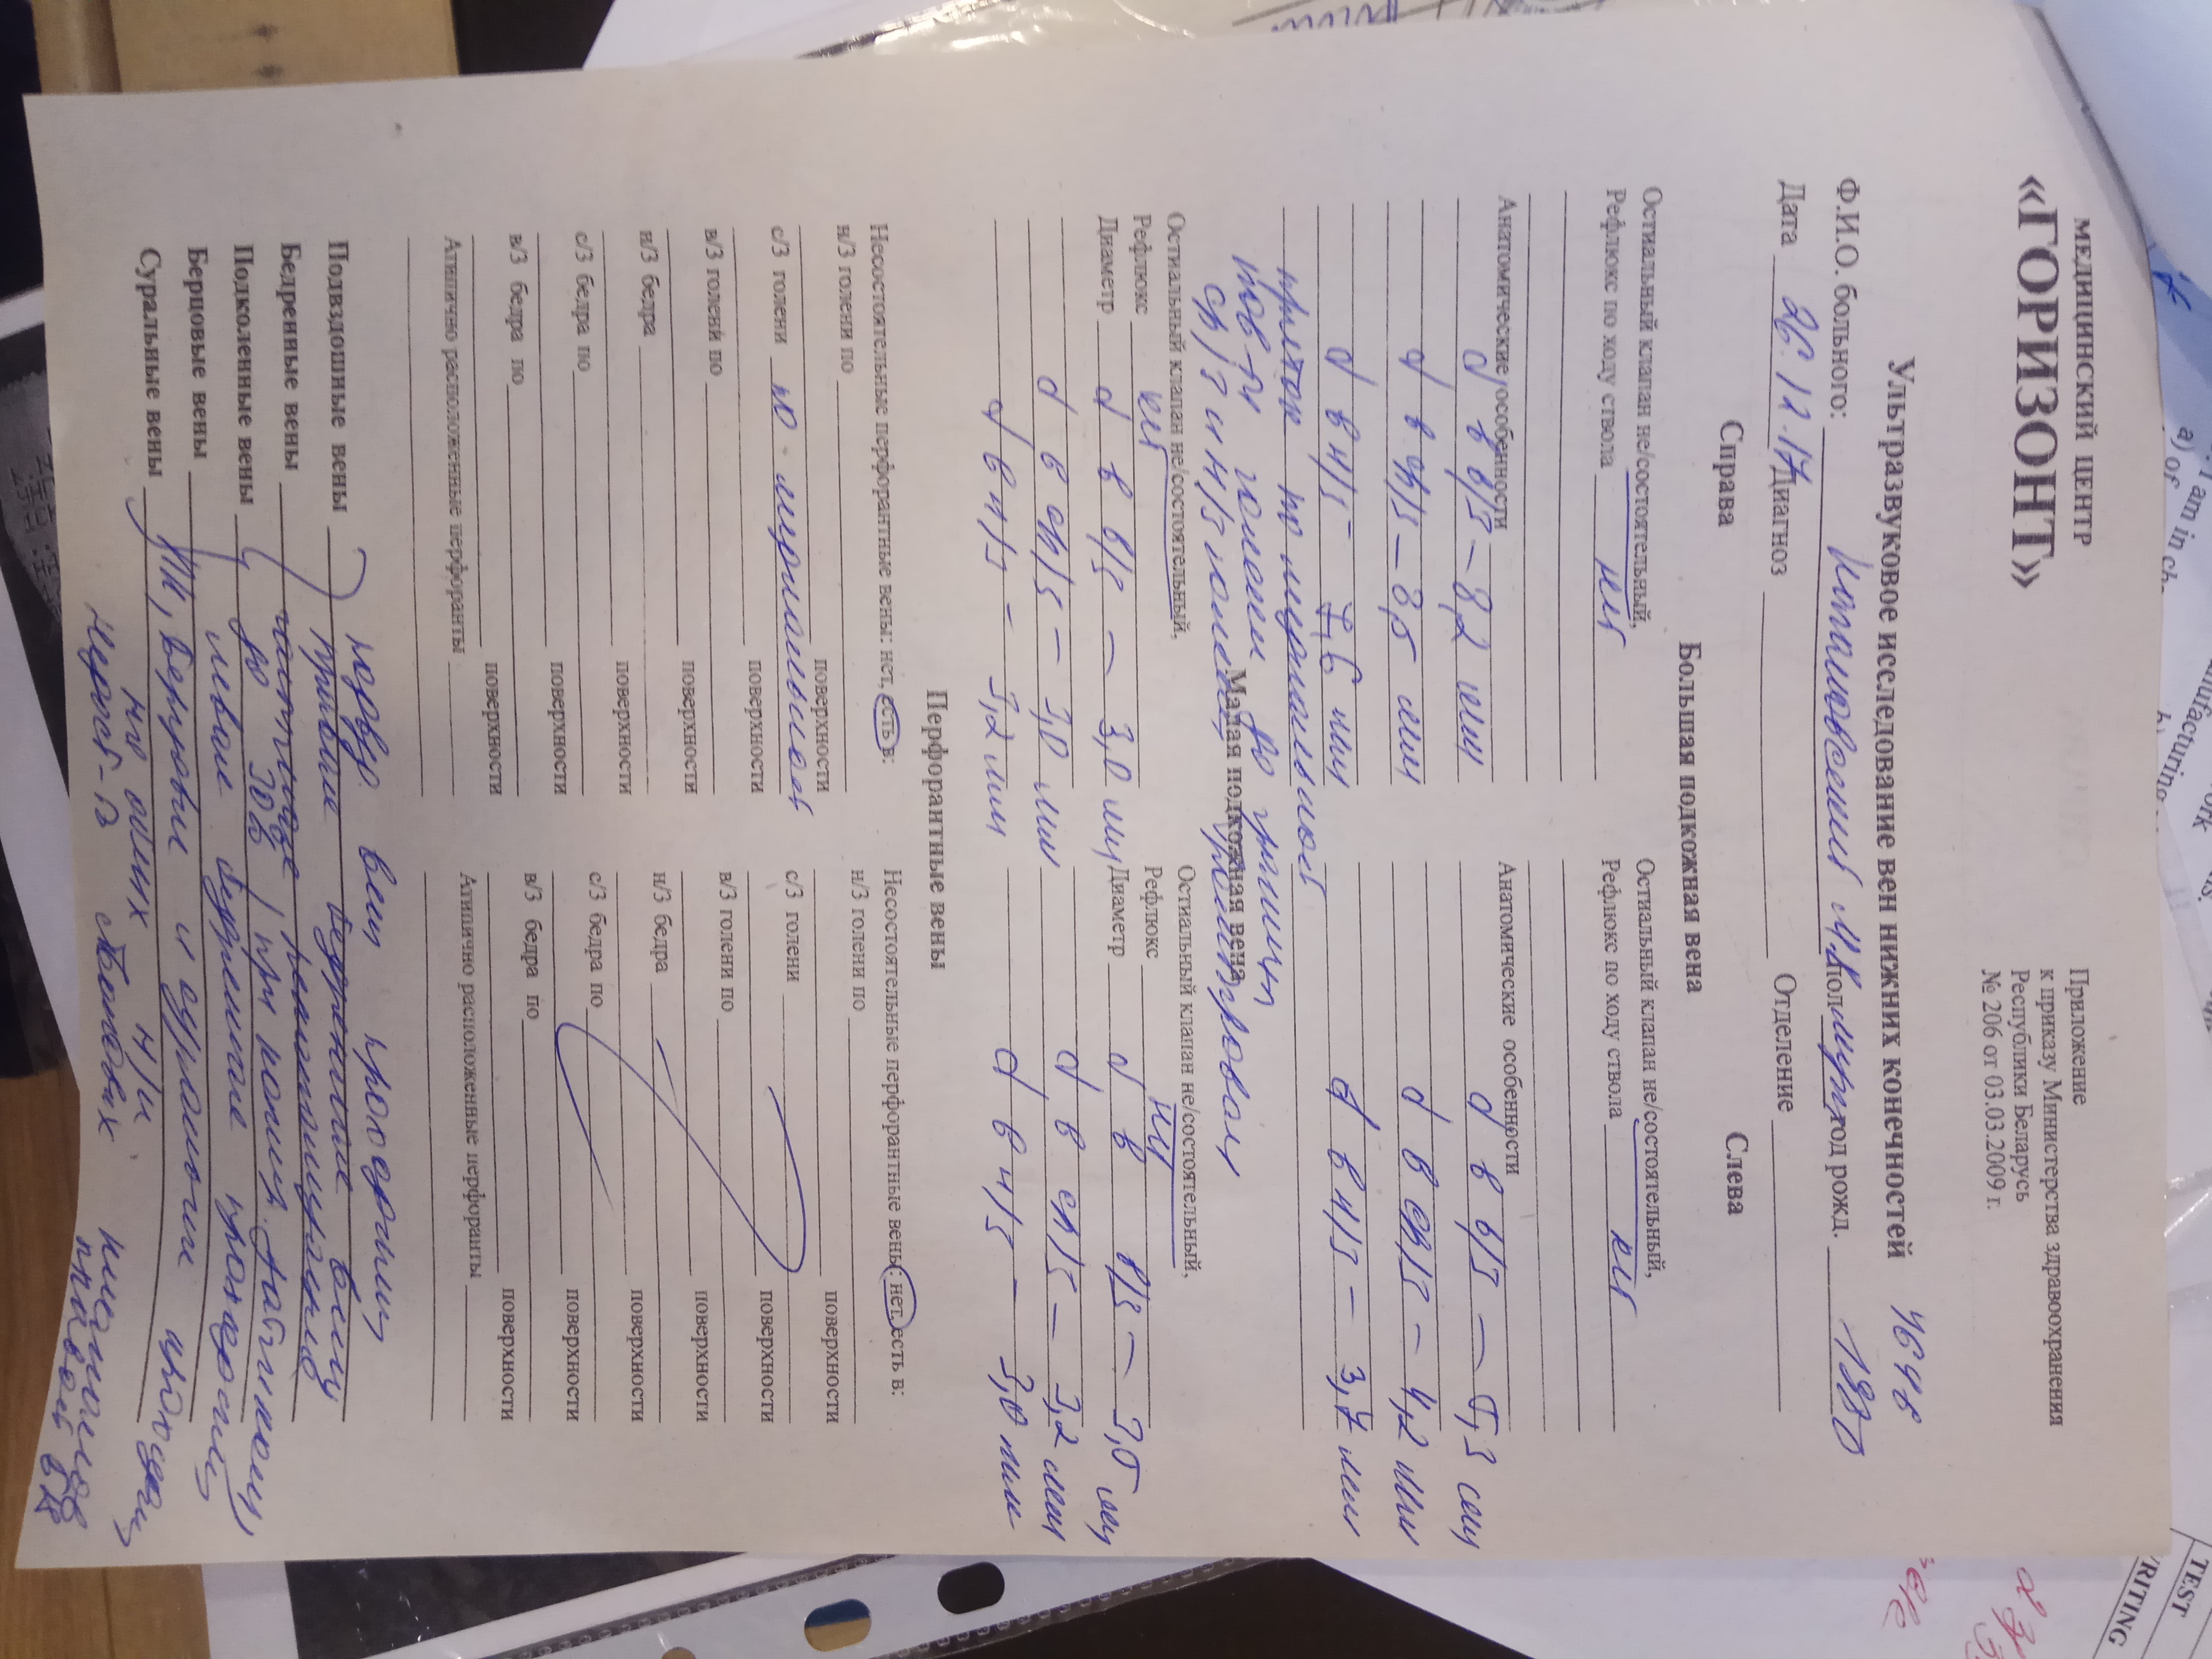 I am in ch
a) of
nufacturing
b)
ork
TEST
WRITING
МЕДИЦИНСКИЙ ЦЕНТР
«ГОРИЗОНТ»
Приложение
к приказу Министерства здравоохранения
Республики Беларусь
№ 206 от 03.03.2009 г.
Ультразвуковое исследование вен нижних конечностей
Ф.И.О. больного: М.В. пол муж год рожд. 1980
Дата 26.12.17 Диагноз Отделение
Справа Слева
Большая подкожная вена
Остиальный клапан не/состоятельный,
Рефлюкс по ходу ствола нет
Анатомические особенности
d в в/3 – 8,2 мм
d в ср/3 – 8,5 мм
d в н/3 – 7,6 мм
приток по медиальной
пов-ти голени до границы
ср/3 и н/3 голени тромбирован
Остиальный клапан не/состоятельный,
Рефлюкс по ходу ствола нет
Анатомические особенности
d в в/3 – 5,3 мм
d в ср/3 – 4,2 мм
d в н/3 – 3,7 мм
Малая подкожная вена
Остиальный клапан не/состоятельный,
Рефлюкс нет
Диаметр d в в/3 – 3,0 мм
d в ср/3 – 3,0 мм
d в н/3 – 3,2 мм
Остиальный клапан не/состоятельный,
Рефлюкс нет
Диаметр d в в/3 – 3,5 мм
d в ср/3 – 3,2 мм
d в н/3 – 3,0 мм
Перфорантные вены
Несостоятельные перфорантные вены: нет, есть в:
н/3 голени по
поверхности
с/3 голени по медиальной
поверхности
в/3 голени по
поверхности
н/3 бедра
поверхности
с/3 бедра по
поверхности
в/3 бедра по
поверхности
Атипично расположенные перфоранты
Несостоятельные перфорантные вены: нет, есть в:
н/3 голени по
поверхности
с/3 голени
поверхности
в/3 голени по
поверхности
н/3 бедра
поверхности
с/3 бедра по
поверхности
в/3 бедра по
поверхности
Атипично расположенные перфоранты
подвзд. вены проходимы
Подвздошные вены
правые бедренные вены
Бедренные вены
частичная реканализация
Подколенные вены
до 30% (при датчиком)
левые бедренные проходимы
Берцовые вены
ПК, берцовые и суральные проходимы
Суральные вены
на обеих н/к
Недост-ть клапанов
правой